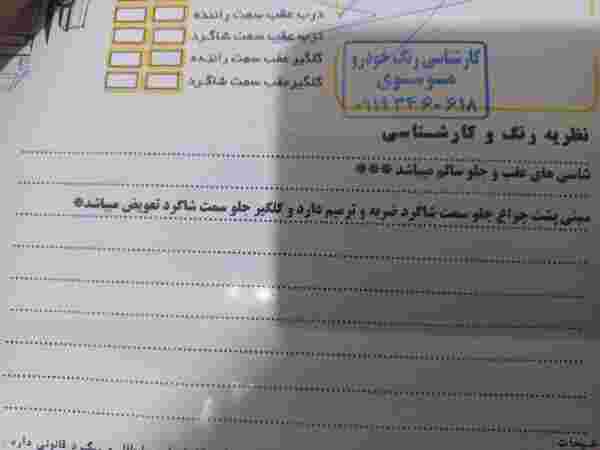 درب عقب سمت راننده
درب عقب سمت شاگرد
گلگیر عقب سمت راننده
گلگیر عقب سمت شاگرد
کارشناسی رنگ خودرو
موسوی
۰۹۱۱۳۴۶۰۶۱۸
نظریه رنگ و کارشناسی
شاسی های عقب و جلو سالم میباشد ***
سینی پشت چراغ جلو سمت شاگرد ضربه و ترمیم دارد و گلگیر جلو سمت شاگرد تعویض میباشد*
پیگرد قانونی دارد